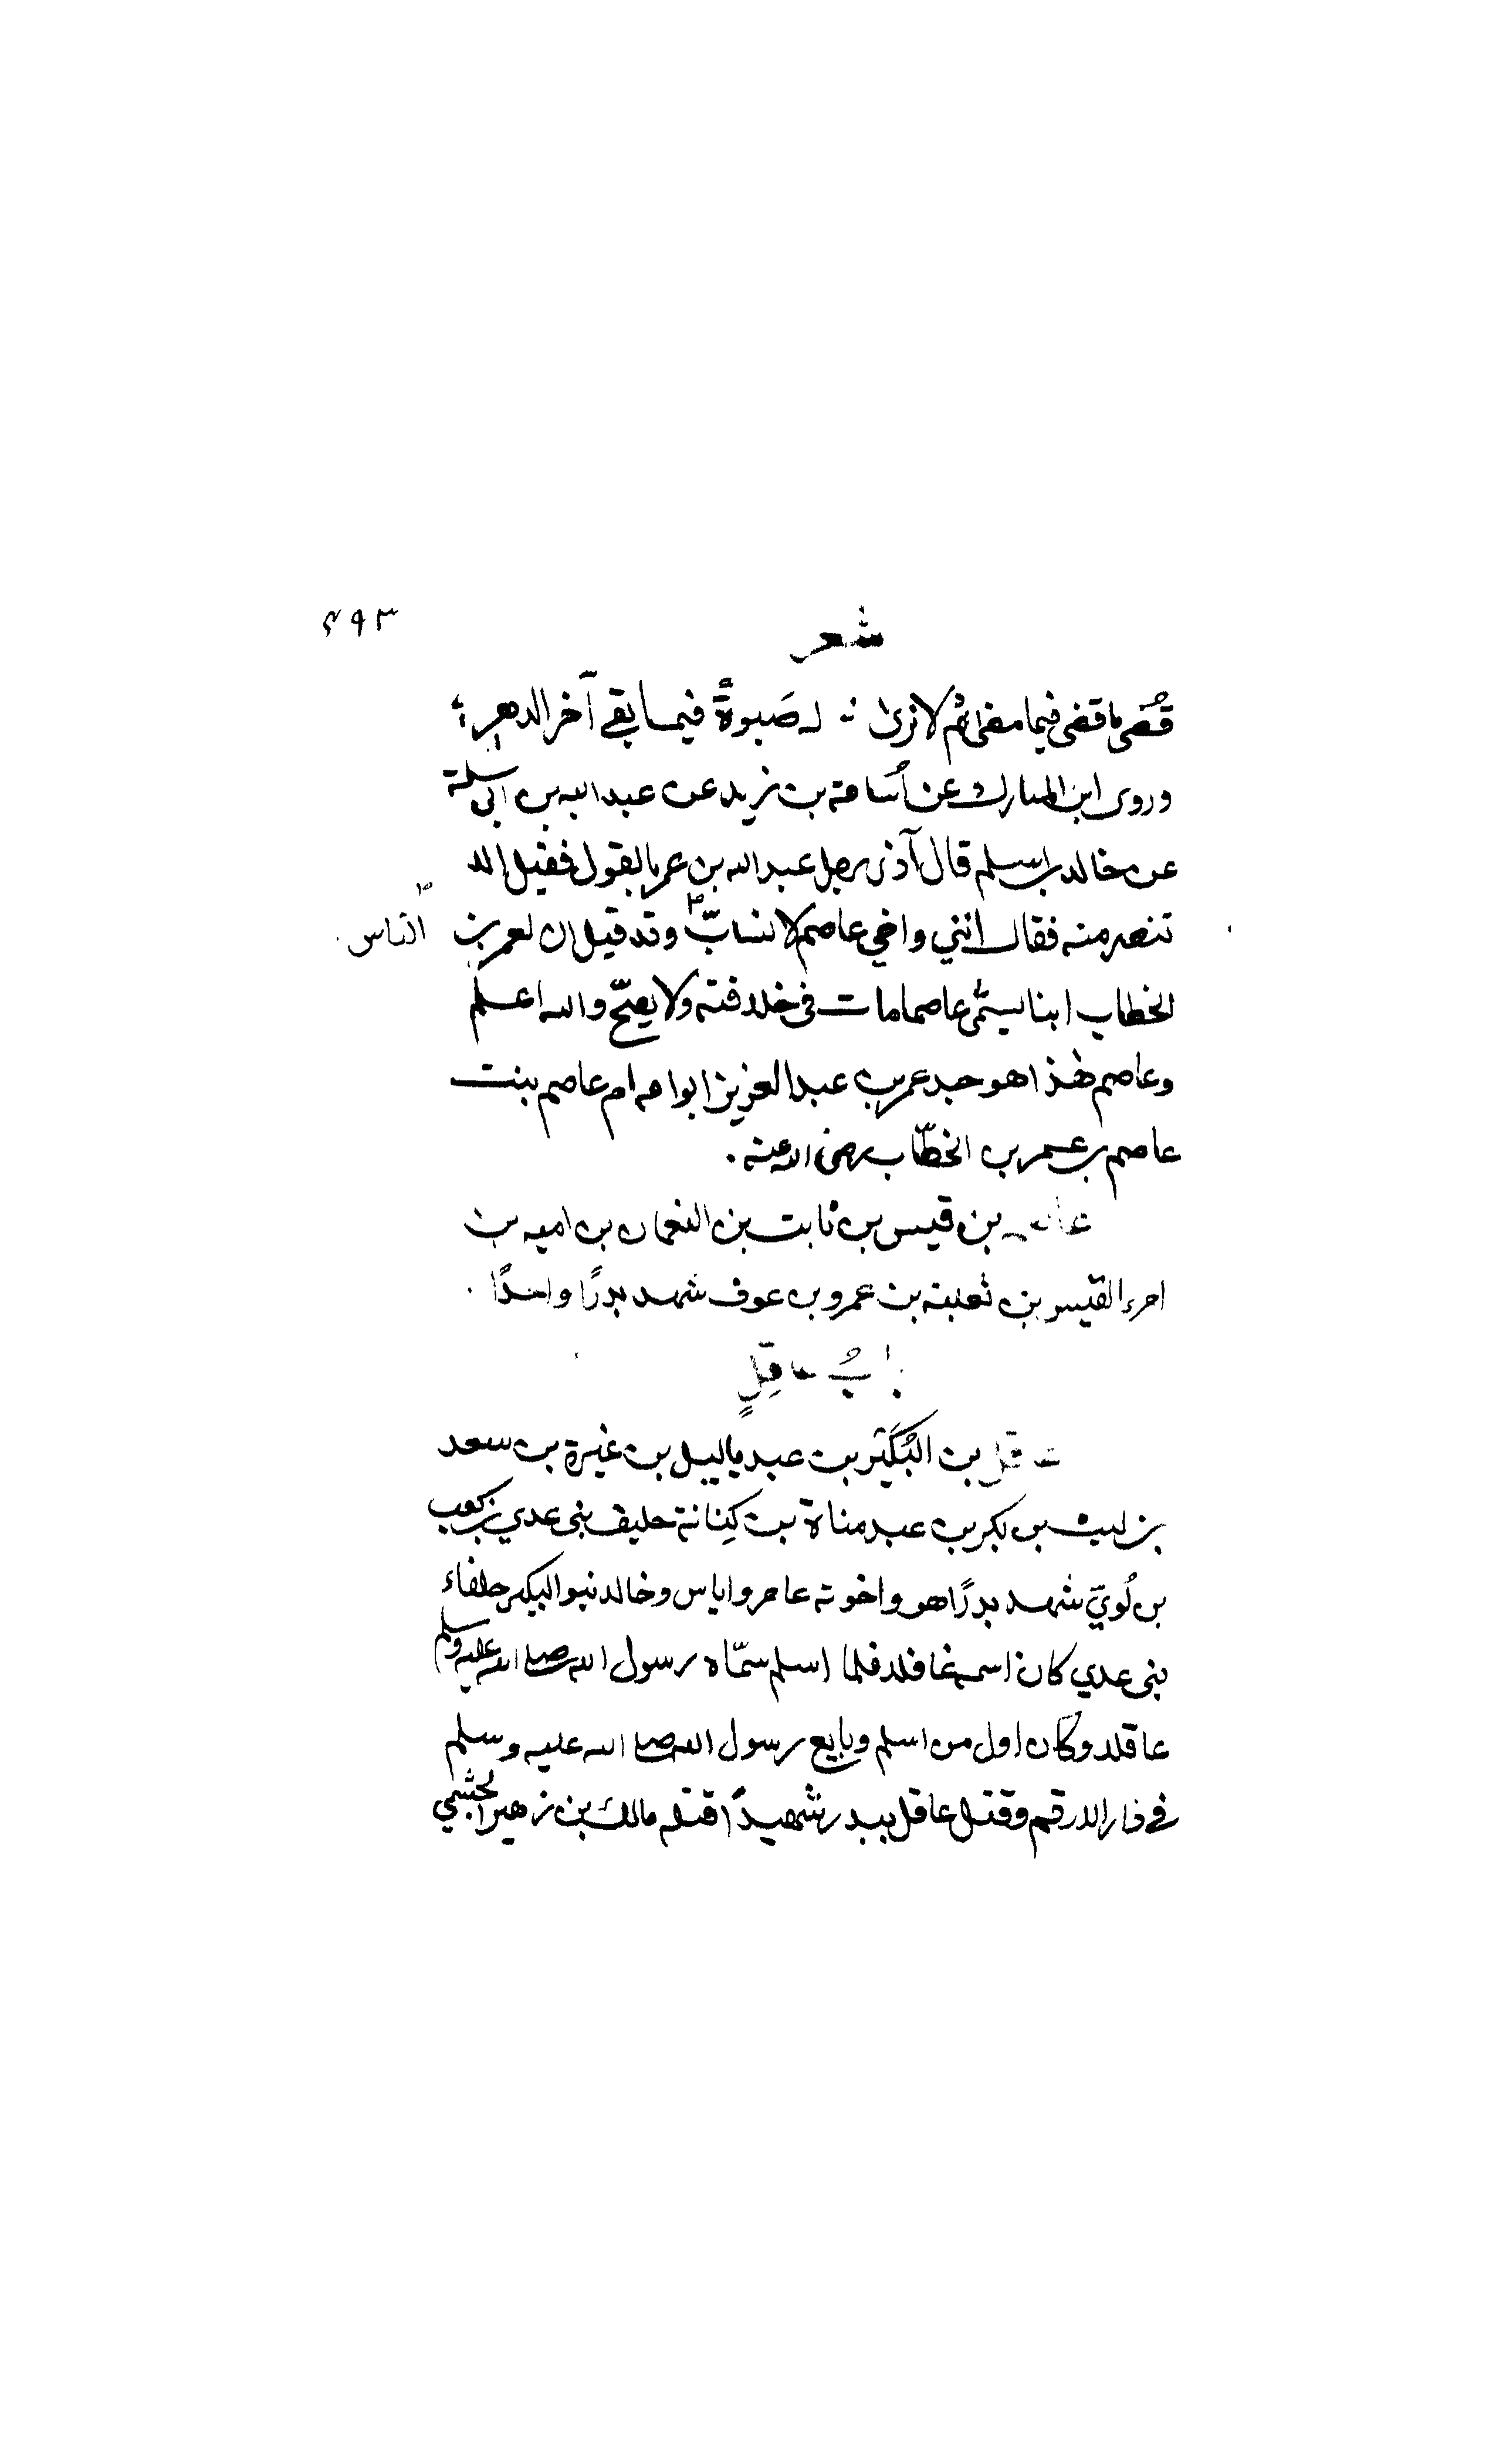 ٤٩٣
شعر
قضى ما قضى فيما مضى ثم لا ترى ؞ له صَبوةً فيما بقے آخر الدهر ؞
وروى ابن المبارك عن أسامة بن زيد عن عبد الله بن ابى سلمة
عن خالد بن اسلم قال آذى رجل عبد الله بن عمر بالقول فقيل الا
تنصر منه فقال انني واخي عاصم لا نسابّ وقد قيل ان لعمر بن
الناس
الخطاب ابنا يسمّى عاصما مات فى خلافته ولا يصحّ والله اعلم
وعاصم هذا هو جد عمر بن عبد العزيز ابو امه ام عاصم بنت
عاصم بن عمر بن الخطّاب رضى الله عنه .
عاصم بن قيس بن ثابت بن النعمان بن اميه بن
امرء القيس بن ثعلبة بن عمرو بن عوف شهد بدرًا واحدًا .
بابُ عاقِلٍ
عاقل بن البُكَيْر بن عبد ياليل بن غيرة بن سعد
بن ليث بن بكر بن عبد مناة بن كِنانة حليف بنى عدي بن كعب
بن لُويّ شهد بدرًا هو واخوته عامر واياس وخالد بنو البكير حلفاء
بنى عدي كان اسمه غافلا فلما اسلم سمّاه رسول الله صلى الله عليه وسلم
عاقلا وكان اول من اسلم وبايع رسول الله صلى الله عليه وسلم
في دار الارقم وقتل عاقل ببدر شهيدًا قتله مالك بن زهير الجشمي